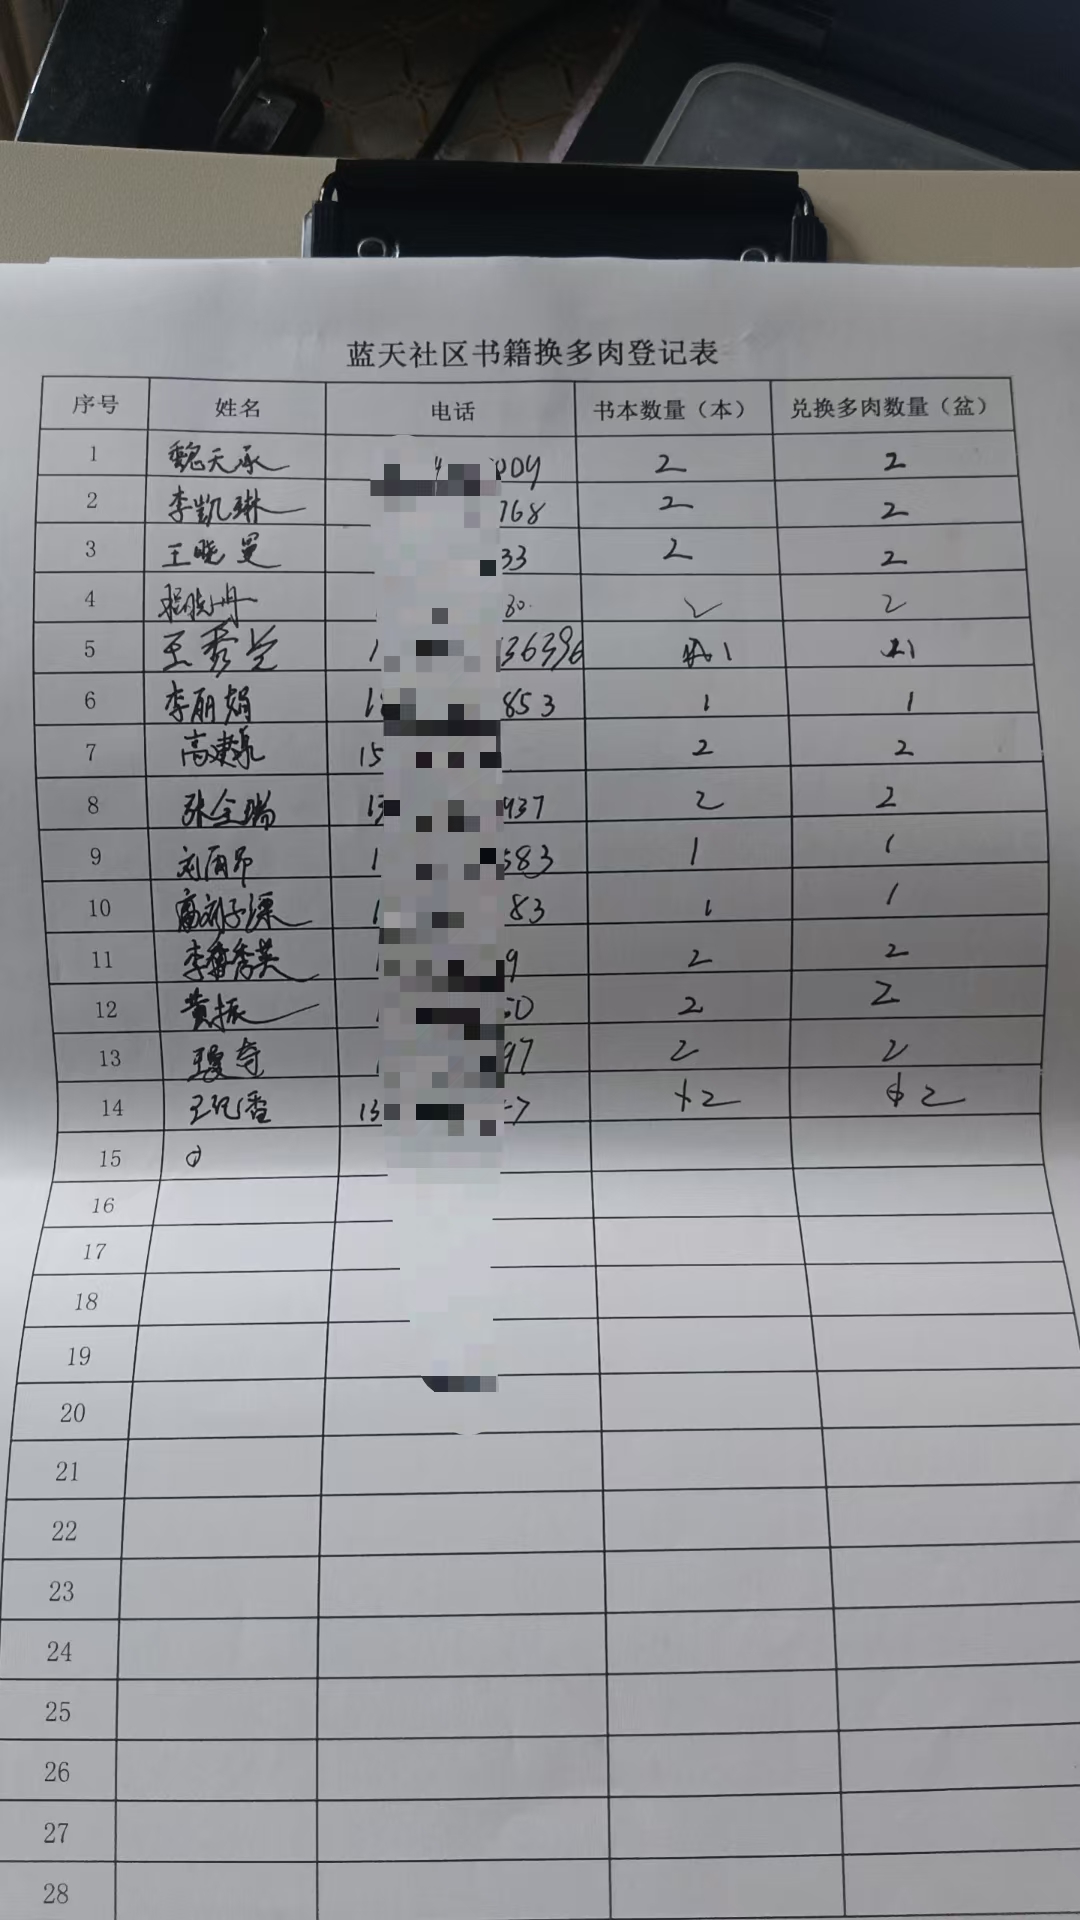 蓝天社区书籍换多肉登记表
序号 姓名 电话 书本数量（本） 兑换多肉数量（盆）
1 魏天承 009 2 2
2 李凯琳 768 2 2
3 王晓曼 33 2 2
4 程晓丹 30. 2 2
5 王秀兰 1 36396 1 1
6 李丽娟 1 853 1 1
7 高建泉 15 2 2
8 张全瑞 13 937 2 2
9 1 583 1 1
10 1 83 1 1
11 李秀英 9 2 2
12 黄振 50 2 2
13 97 2 2
14 王 香 13 7 2 2
15
16
17
18
19
20
21
22
23
24
25
26
27
28